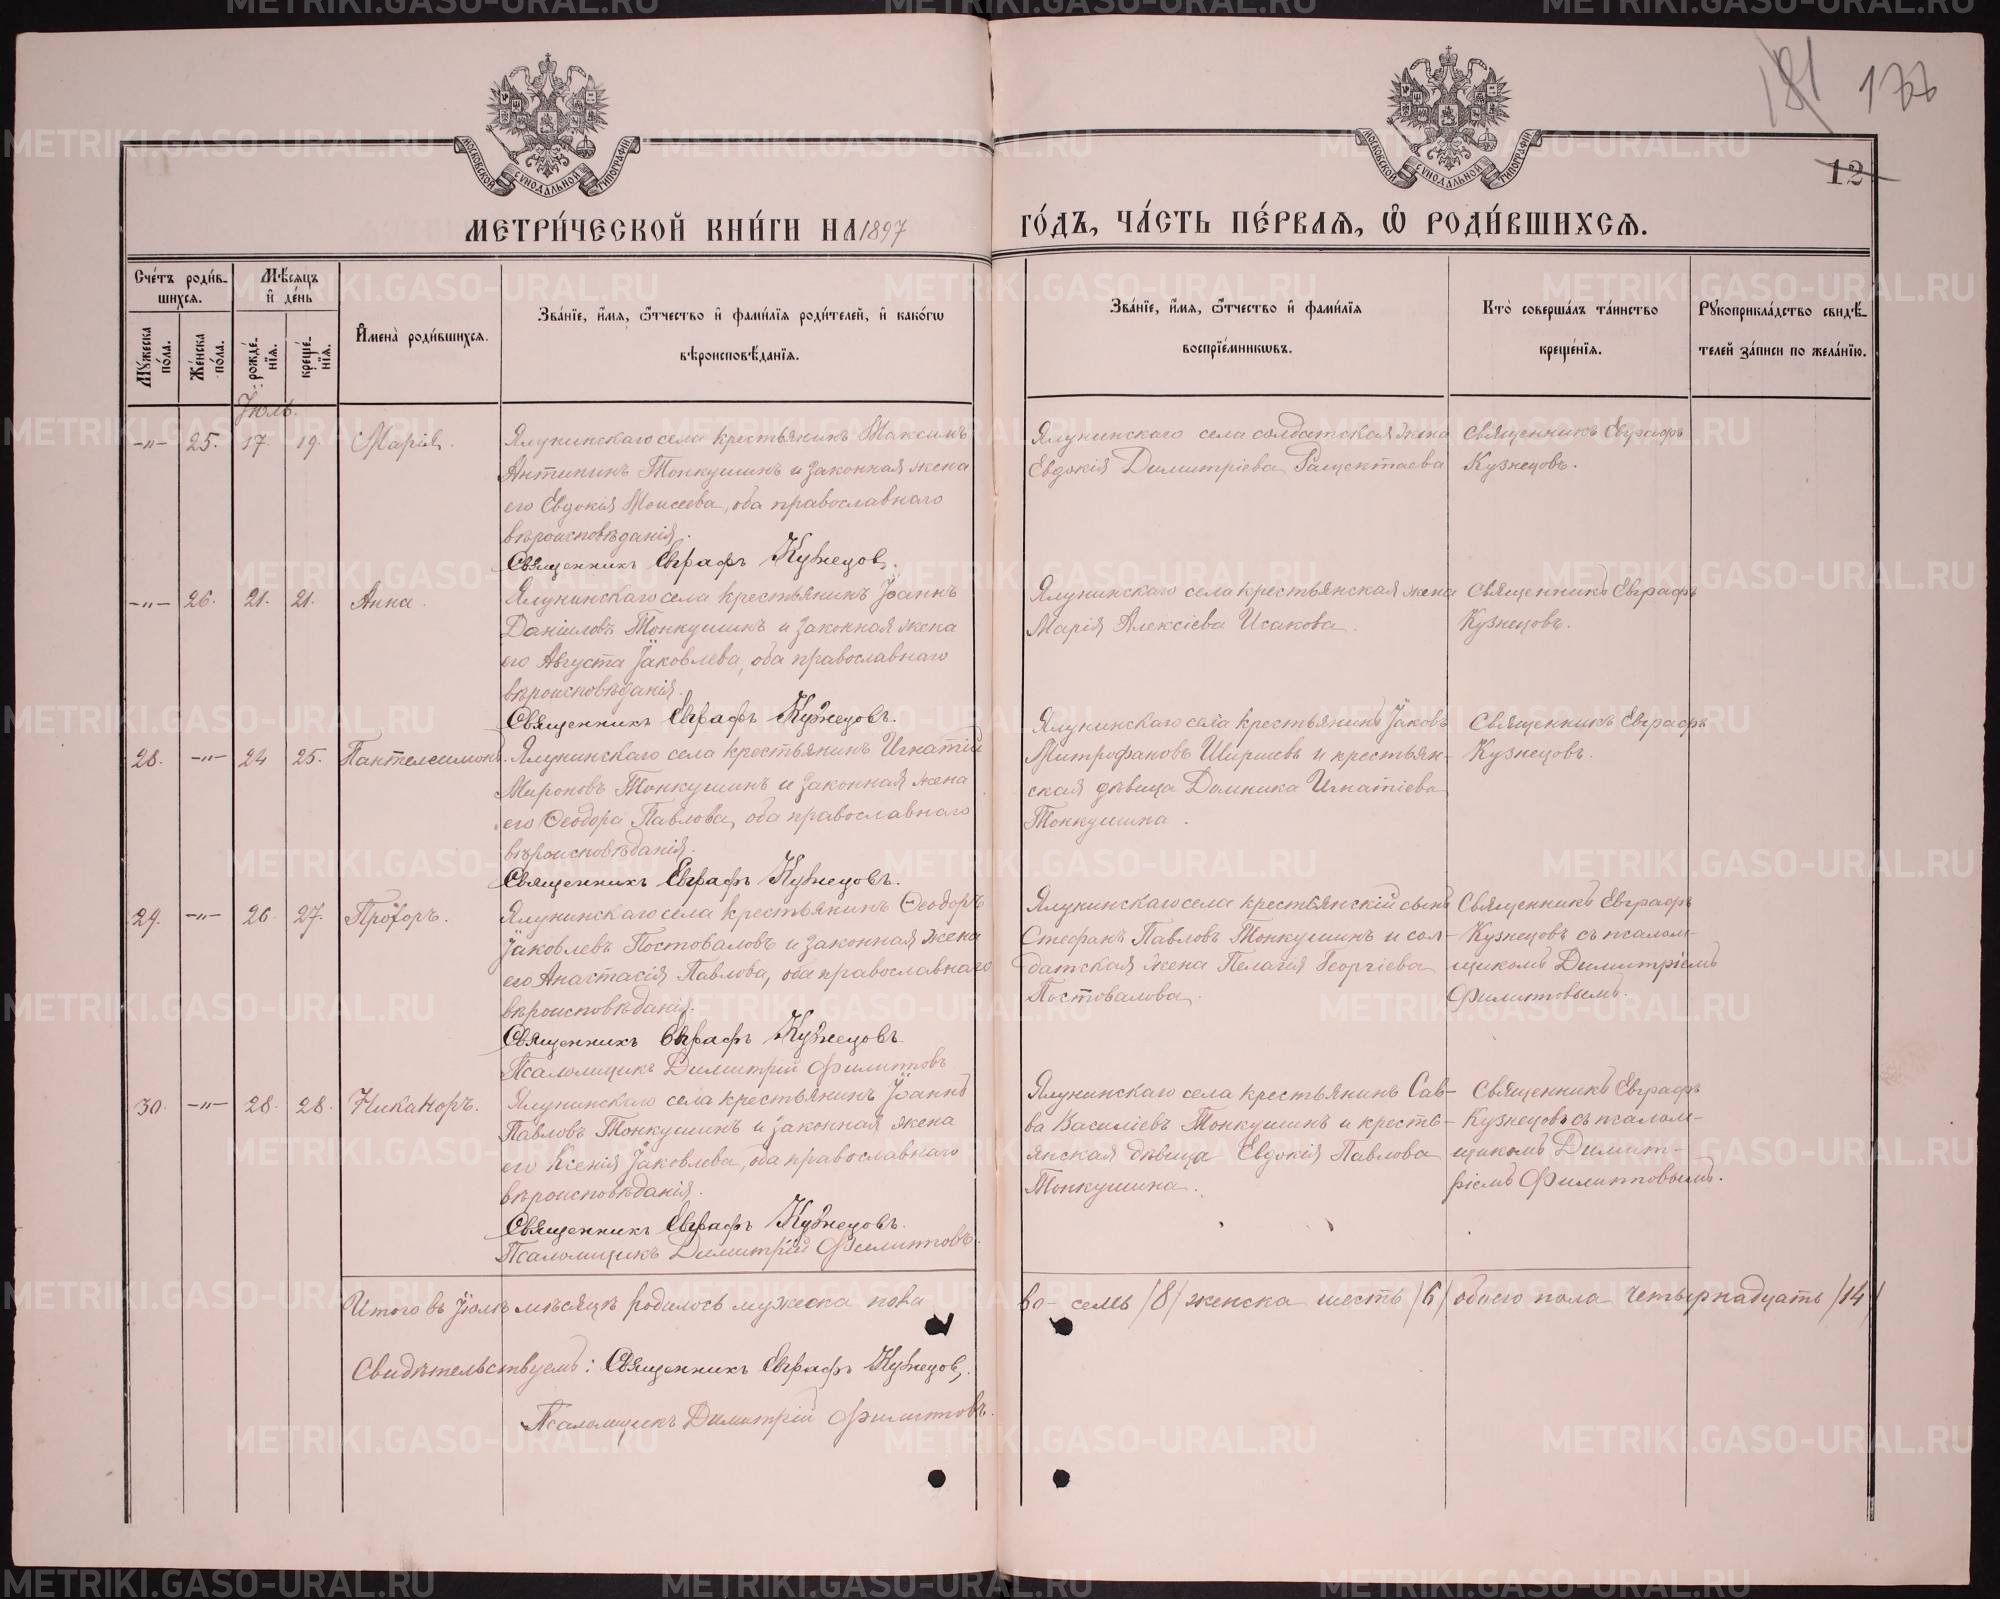 181 177
12
МОСКОВСКОЙ СѴНОДАЛЬНОЙ ТИПОГРАФІИ
МОСКОВСКОЙ СѴНОДАЛЬНОЙ ТИПОГРАФІИ
МЕТРИ́ЧЕСКОЙ КНИ́ГИ НА 1897 ГО́ДЪ, ЧА́СТЬ ПЕ́РВАѦ, Ѽ РОДИ́ВШИХСѦ.
Сче́тъ роди́в-
шихсѧ.
Мꙋ́жеска по́ла.
Же́нска по́ла.
Мѣ́сѧцъ
и҆ де́нь
рожде́-
нїѧ.
креще́-
нїѧ.
И҆мена̀ роди́вшихсѧ.
Зва́нїе, и҆́мѧ, ѻ҆́тчество и҆ фами́лїѧ роди́телей, и҆ како́гѡ
вѣроисповѣ́данїѧ.
Зва́нїе, и҆́мѧ, ѻ҆́тчество и҆ фами́лїѧ
воспрїе́мникѡвъ.
Кто̀ соверша́лъ та́инство
креще́нїѧ.
Рꙋкоприкла́дство свидѣ́-
телей за́писи по жела́нїю.
Іюль.
-"- 25. 17. 19. Марія.
Ялунинскаго села крестьянинъ Максимъ
Антипинъ Тонкушинъ и законная жена
его Евдокія Моисеева, оба православнаго
вѣроисповѣданія.
Священникъ Евграфъ Кузнецовъ.
Ялунинскаго села солдатская жена
Евдокія Димитріева Ращектаева
Священникъ Евграфъ
Кузнецовъ.
-"- 26. 21. 21. Анна.
Ялунинскаго села крестьянинъ Іоаннъ
Даніиловъ Тонкушинъ и законная жена
его Августа Іаковлева, оба православнаго
вѣроисповѣданія.
Священникъ Евграфъ Кузнецовъ.
Ялунинскаго села крестьянская жена
Марія Алексіева Исакова.
Священникъ Евграфъ
Кузнецовъ.
28. -"- 24 25. Пантелеимонъ.
Ялунинскаго села крестьянинъ Игнатій
Мироновъ Тонкушинъ и законная жена
его Ѳеодора Павлова, оба православнаго
вѣроисповѣданія.
Священникъ Евграфъ Кузнецовъ.
Ялунинскаго села крестьянинъ Іаковъ
Митрофановъ Ширшевъ и крестьян-
ская дѣвица Домника Игнатіева
Тонкушина.
Священникъ Евграфъ
Кузнецовъ.
29. -"- 26. 27. Прохоръ.
Ялунинскаго села крестьянинъ Ѳеодоръ
Іаковлевъ Постоваловъ и законная жена
его Анастасія Павлова, оба православнаго
вѣроисповѣданія.
Священникъ Евграфъ Кузнецовъ.
Псаломщикъ Димитрій Филитовъ
Ялунинскаго села крестьянскій сынъ
Стефанъ Павловъ Тонкушинъ и сол-
датская жена Пелагія Георгіева
Постовалова.
Священникъ Евграфъ
Кузнецовъ съ псалом-
щикомъ Димитріемъ
Филитовымъ.
30. -"- 28. 28. Никаноръ.
Ялунинскаго села крестьянинъ Іоаннъ
Павловъ Тонкушинъ и законная жена
его Ксенія Іаковлева, оба православнаго
вѣроисповѣданія.
Священникъ Евграфъ Кузнецовъ.
Псаломщикъ Димитрій Филитовъ.
Ялунинскаго села крестьянинъ Сав-
ва Василіевъ Тонкушинъ и кресть-
янская дѣвица Евдокія Павлова
Тонкушина.
Священникъ Евграфъ
Кузнецовъ съ псалом-
щикомъ Димит-
ріемъ Филитовымъ.
Итого въ Іюлѣ мѣсяцѣ родилось мужеска пола во- семь /8/ женска шесть /6/ обоего пола четырнадцать /14/
Свидѣтельствуемъ: Священникъ Евграфъ Кузнецовъ.
Псаломщикъ Димитрій Филитовъ.
METRIKI.GASO-URAL.RU